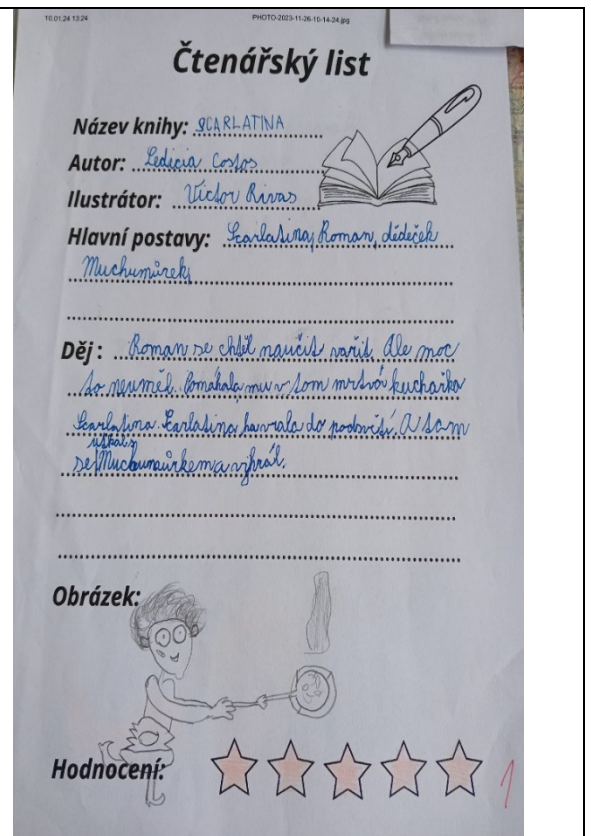 10.01.24 13:24 PHOTO-2023-11-26-10-14-24.jpg
Čtenářský list
Název knihy: SCARLATINA
Autor: Ledicia Costos
Ilustrátor: Victor Rivas
Hlavní postavy: Scarlatina, Roman, dědeček
Muchumůrek,
Děj : Roman se chtěl naučit vařit. Ale moc
to neuměl. Pomáhala mu v tom mrtvá kuchařka
Scarlatina. Scarlatina ho vzala do podsvětí. A tam
utkal
se s Muchumůrkem a vyhrál.
Obrázek:
Hodnocení:
1